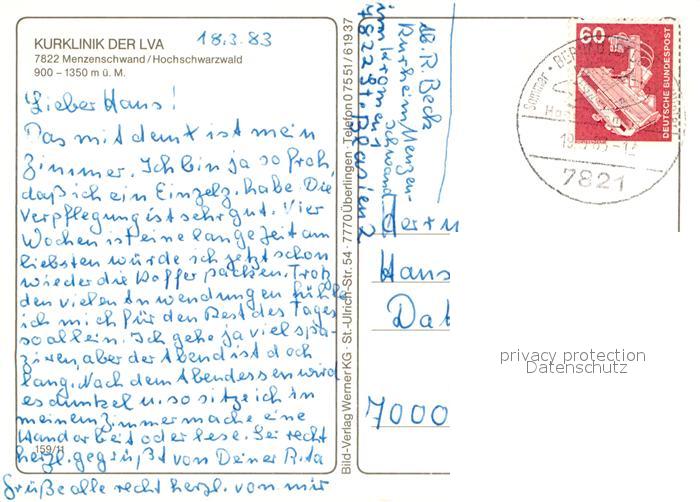 KURKLINIK DER LVA 18.3.83
7822 Menzenschwand/Hochschwarzwald
900 – 1350 m ü. M.
Lieber Hans!
Das mit dem X ist mein
Zimmer. Ich bin ja so froh,
daß ich ein Einzelz. habe. Die
Verpflegung ist sehr gut. Vier
Wochen ist eine lange Zeit am
liebsten würde ich jetzt schon
wieder die Koffer packen. Trotz
den vielen Anwendungen fühle
ich mich für den Rest des Tages
so allein. Ich gehe ja viel spa-
zieren, aber der Abend ist doch
lang. Nach dem Abendessen wird
es dunkel u. so sitze ich in
meinem Zimmer mache eine
Handarbeit oder lese. Sei recht
herzl. gegrüßt von Deiner Rita
159/11
Grüße alle recht herzl. von mir
Bild-Verlag Werner KG · St.-Ulrich-Str. 54 · 7770 Überlingen · Telefon 07551/61937
R. Beck
Kurheim Menzen-
schwand
im Kromen 1
7822 St. Blasien 2
Hans
7000
60
DEUTSCHE BUNDESPOST
Sommer
7821
privacy protection
Datenschutz